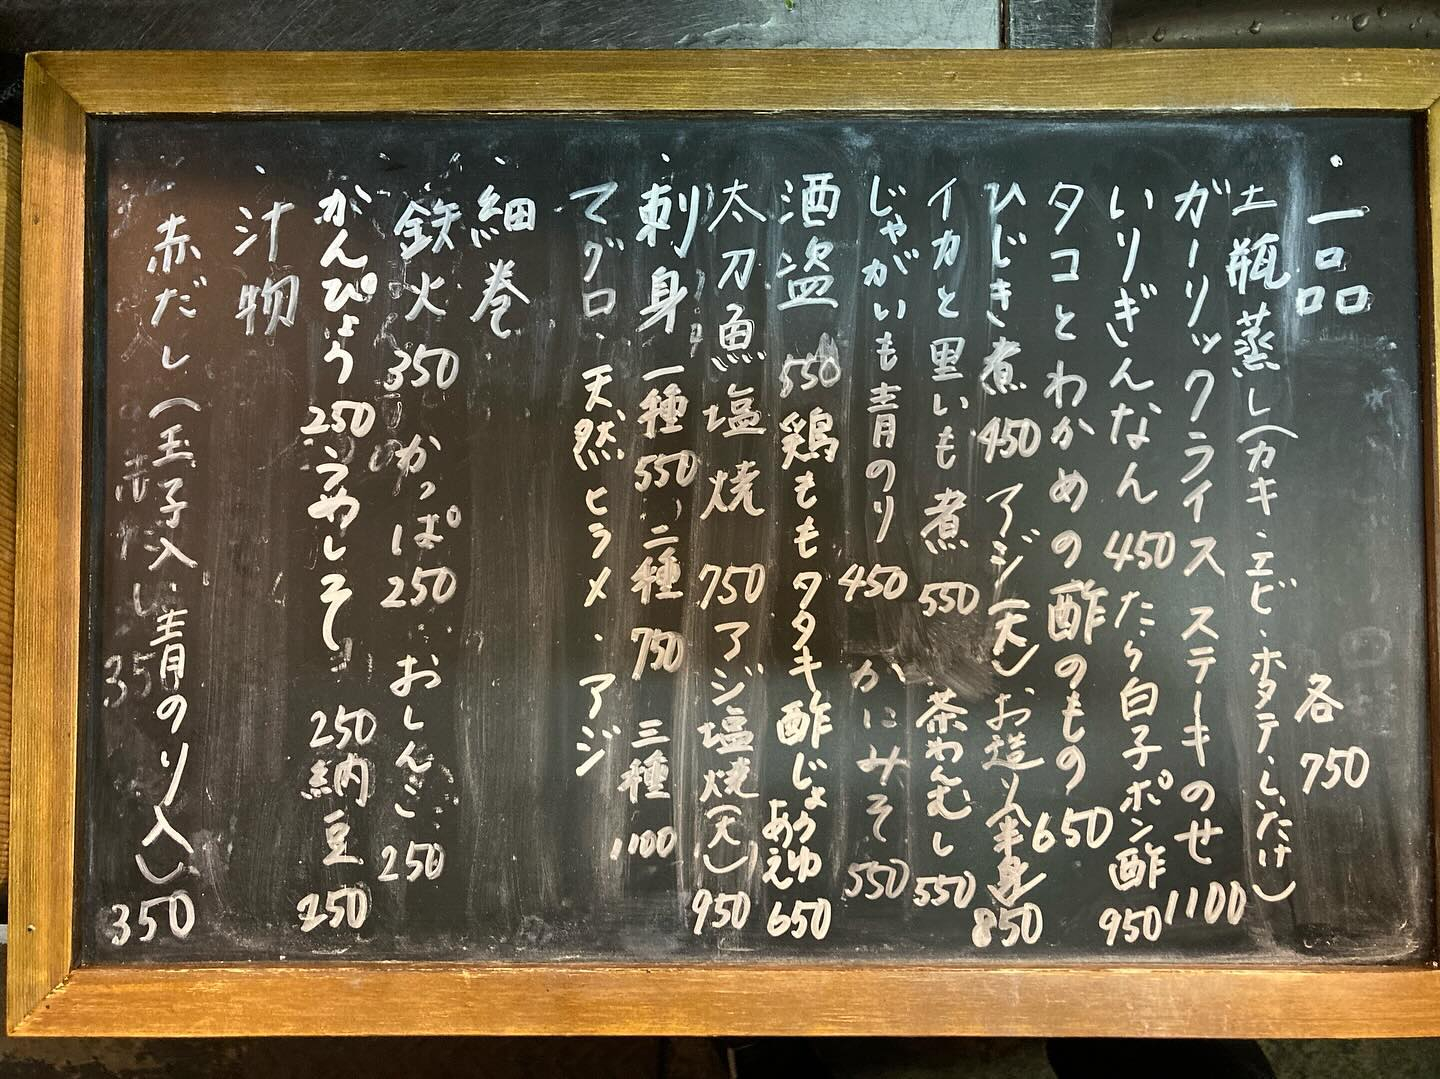 ・一品 各750
土瓶蒸し(カキ・エビ・ホタテ・しいたけ)
ガーリックライスステーキのせ 1100
いりぎんなん 450 たら白子ポン酢 950
タコとわかめの酢のもの 650
ひじき煮 450 アジ(天)お造り(半身) 850
イカと里いも煮 550 茶わんむし 550
じゃがいも青のり 450 かにみそ 550
酒盗 550 鶏ももタタキ酢じょうゆあえ 650
太刀魚塩焼 750 アジ塩焼(天) 950
・刺身 一種 550、二種 750 三種 1100
マグロ、天然ヒラメ・アジ
・細巻
鉄火 350 かっぱ 250 おしんこ 250
かんぴょう 250 うめしそ 250 納豆 250
・汁物
赤だし(玉子入い青のり入) 350